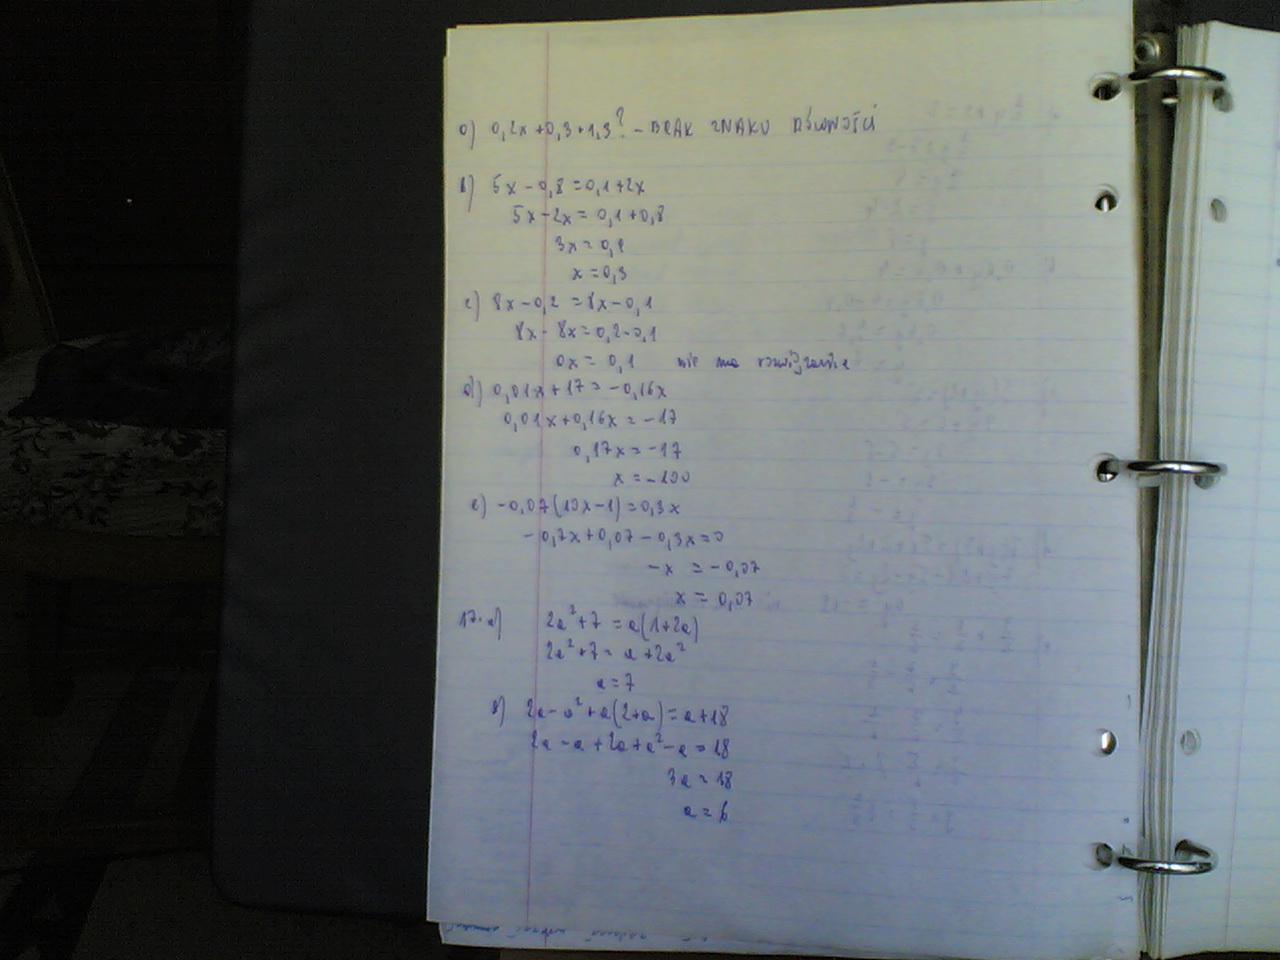 a) 0,2x+0,3+1,3? - BRAK ZNAKU RÓWNOŚCI
b) 5x-0,8=0,1+2x
5x-2x=0,1+0,8
3x=0,9
x=0,3
c) 8x-0,2=8x-0,1
8x-8x=0,2-0,1
0x=0,1 nie ma rozwiązania
d) 0,01x+17=-0,16x
0,01x+0,16x=-17
0,17x=-17
x=-100
e) -0,07(10x-1)=0,3x
-0,7x+0,07-0,3x=0
-x=-0,07
x=0,07
17. a) 2a²+7=a(1+2a)
2a²+7=a+2a²
a=7
b) 2a-a²+a(2+a)=a+18
2a-a+2a+a²-a=18
3a=18
a=6